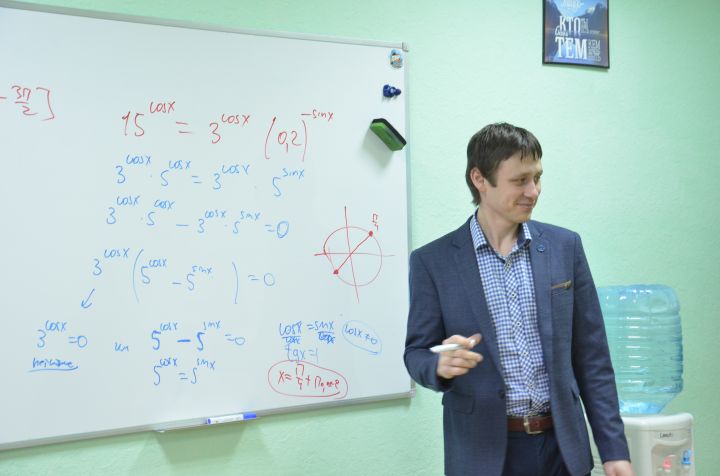 - 3π/2]
15^cosx = 3^cosx (0,2)^-sinx
3^cosx · 5^cosx = 3^cosx · 5^sinx
3^cosx · 5^cosx - 3^cosx · 5^sinx = 0
3^cosx (5^cosx - 5^sinx) = 0
3^cosx = 0 или 5^cosx - 5^sinx = 0
5^cosx = 5^sinx
π/4
cosx/cosx = sinx/cosx
cosx ≠ 0
tgx = 1
x = π/4 + πn, n∈
КТО
ТЕМ